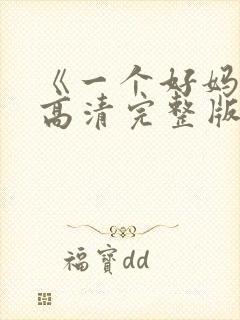 《一个好妈
高清完整版
福寳dd